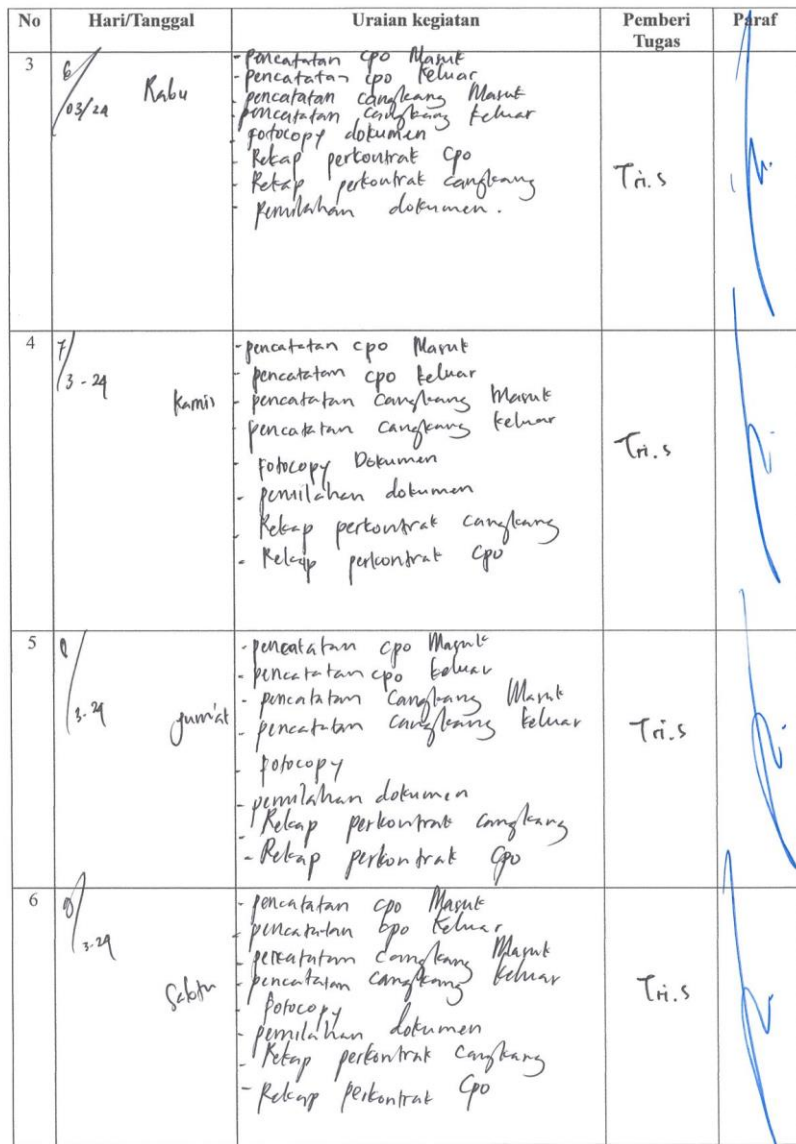 No Hari/Tanggal Uraian kegiatan Pemberi Tugas Paraf
3 6/03/24 Rabu
- pencatatan cpo Masuk
- pencatatan cpo keluar
- pencatatan cangkang Masuk
- pencatatan cangkang keluar
- fotocopy dokumen
- Rekap perkontrak cpo
- Rekap perkontrak cangkang
- pemilahan dokumen.
Tri.s
4 7/3-24 kamis
- pencatatan cpo Masuk
- pencatatan cpo keluar
- pencatatan cangkang Masuk
- pencatatan cangkang keluar
- Fotocopy Dokumen
- pemilahan dokumen
- Rekap perkontrak cangkang
- Rekap perkontrak cpo
Tri.s
5 8/3-24 jum'at
- pencatatan cpo Masuk
- pencatatan cpo keluar
- pencatatan cangkang Masuk
- pencatatan cangkang keluar
- fotocopy
- pemilahan dokumen
- Rekap perkontrak cangkang
- Rekap perkontrak cpo
Tri.s
6 9/3-24 Sabtu
- pencatatan cpo Masuk
- pencatatan cpo keluar
- pencatatan cangkang Masuk
- pencatatan cangkang keluar
- fotocopy
- pemilahan dokumen
- Rekap perkontrak cangkang
- Rekap perkontrak cpo
Tri.s